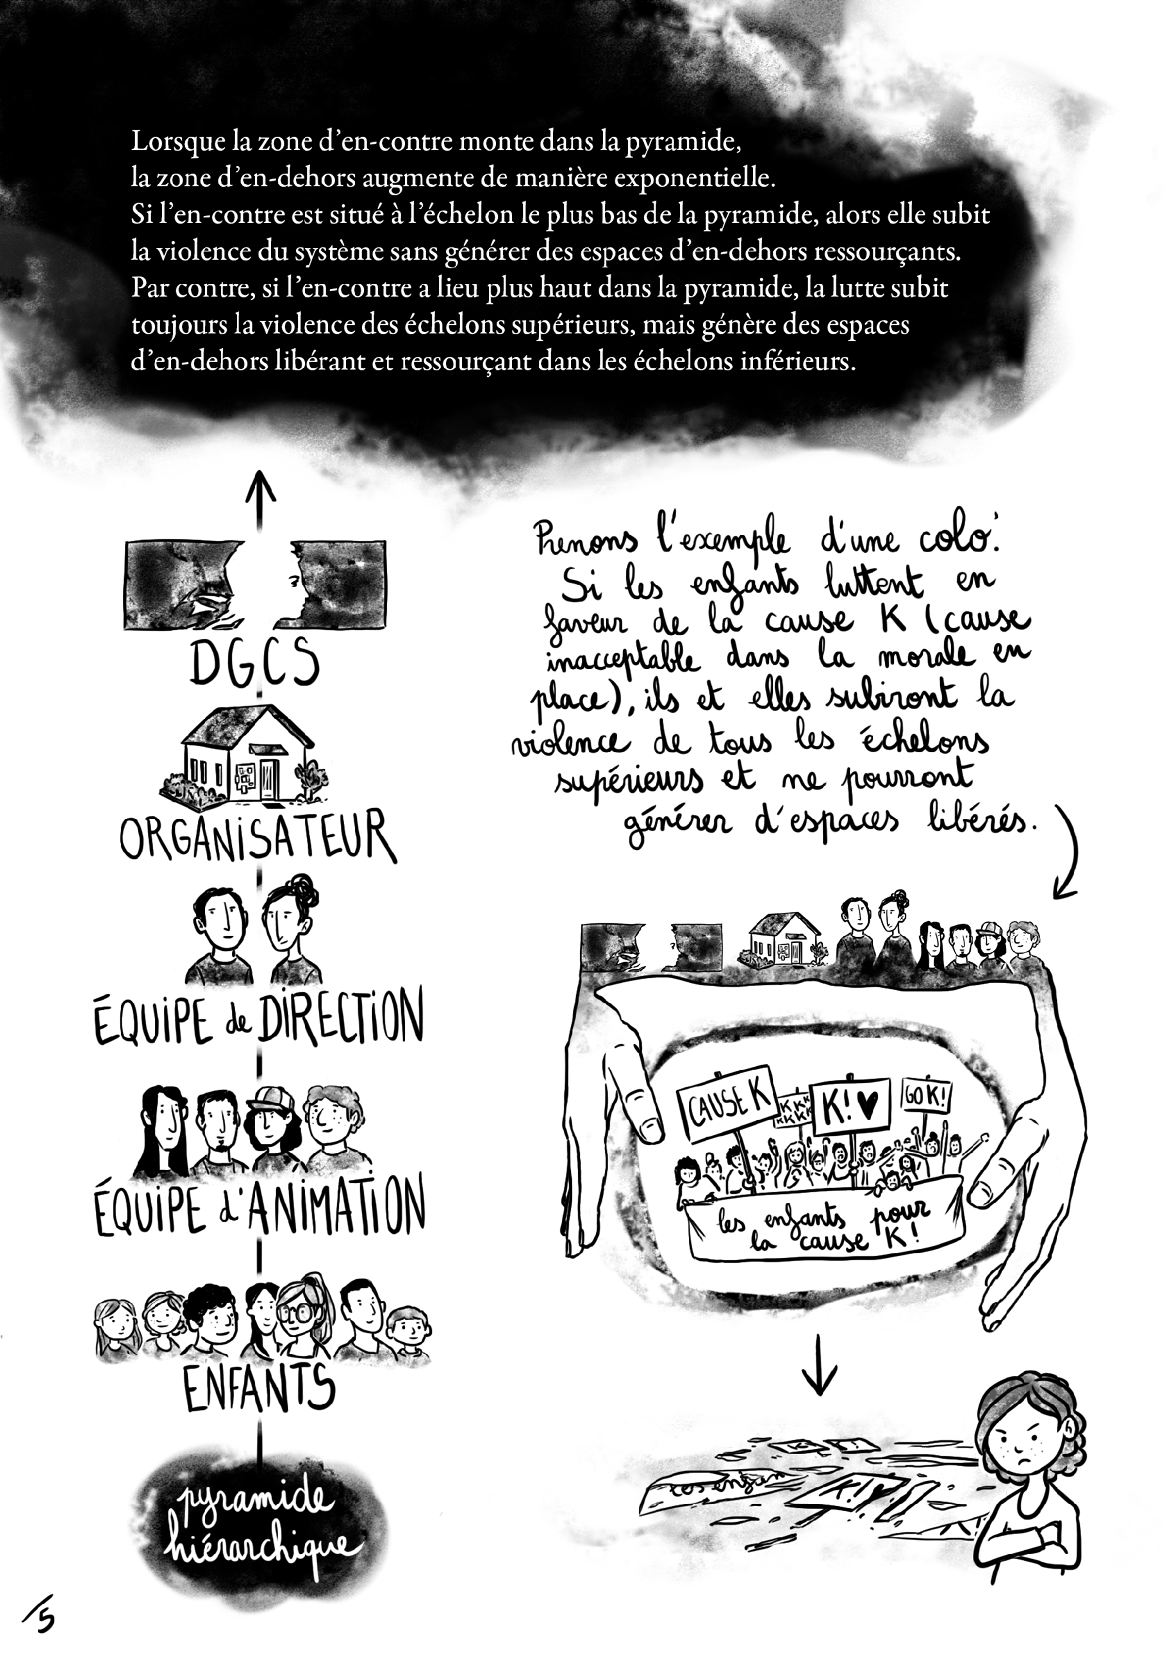 Lorsque la zone d'en-contre monte dans la pyramide,
la zone d'en-dehors augmente de manière exponentielle.
Si l'en-contre est situé à l'échelon le plus bas de la pyramide, alors elle subit
la violence du système sans générer des espaces d'en-dehors ressourçants.
Par contre, si l'en-contre a lieu plus haut dans la pyramide, la lutte subit
toujours la violence des échelons supérieurs, mais génère des espaces
d'en-dehors libérant et ressourçant dans les échelons inférieurs.
DGCS
ORGANISATEUR
ÉQUIPE de DIRECTION
ÉQUIPE d'ANIMATION
ENFANTS
pyramide
hiérarchique
Prenons l'exemple d'une colo:
Si les enfants luttent en
faveur de la cause K (cause
inacceptable dans la morale en
place), ils et elles subiront la
violence de tous les échelons
supérieurs et ne pourront
générer d'espaces libérés.
CAUSE K
K K K
K K K
K! ♥
GO K!
les enfants pour
la cause K!
Les enfan
K! ♥
/5